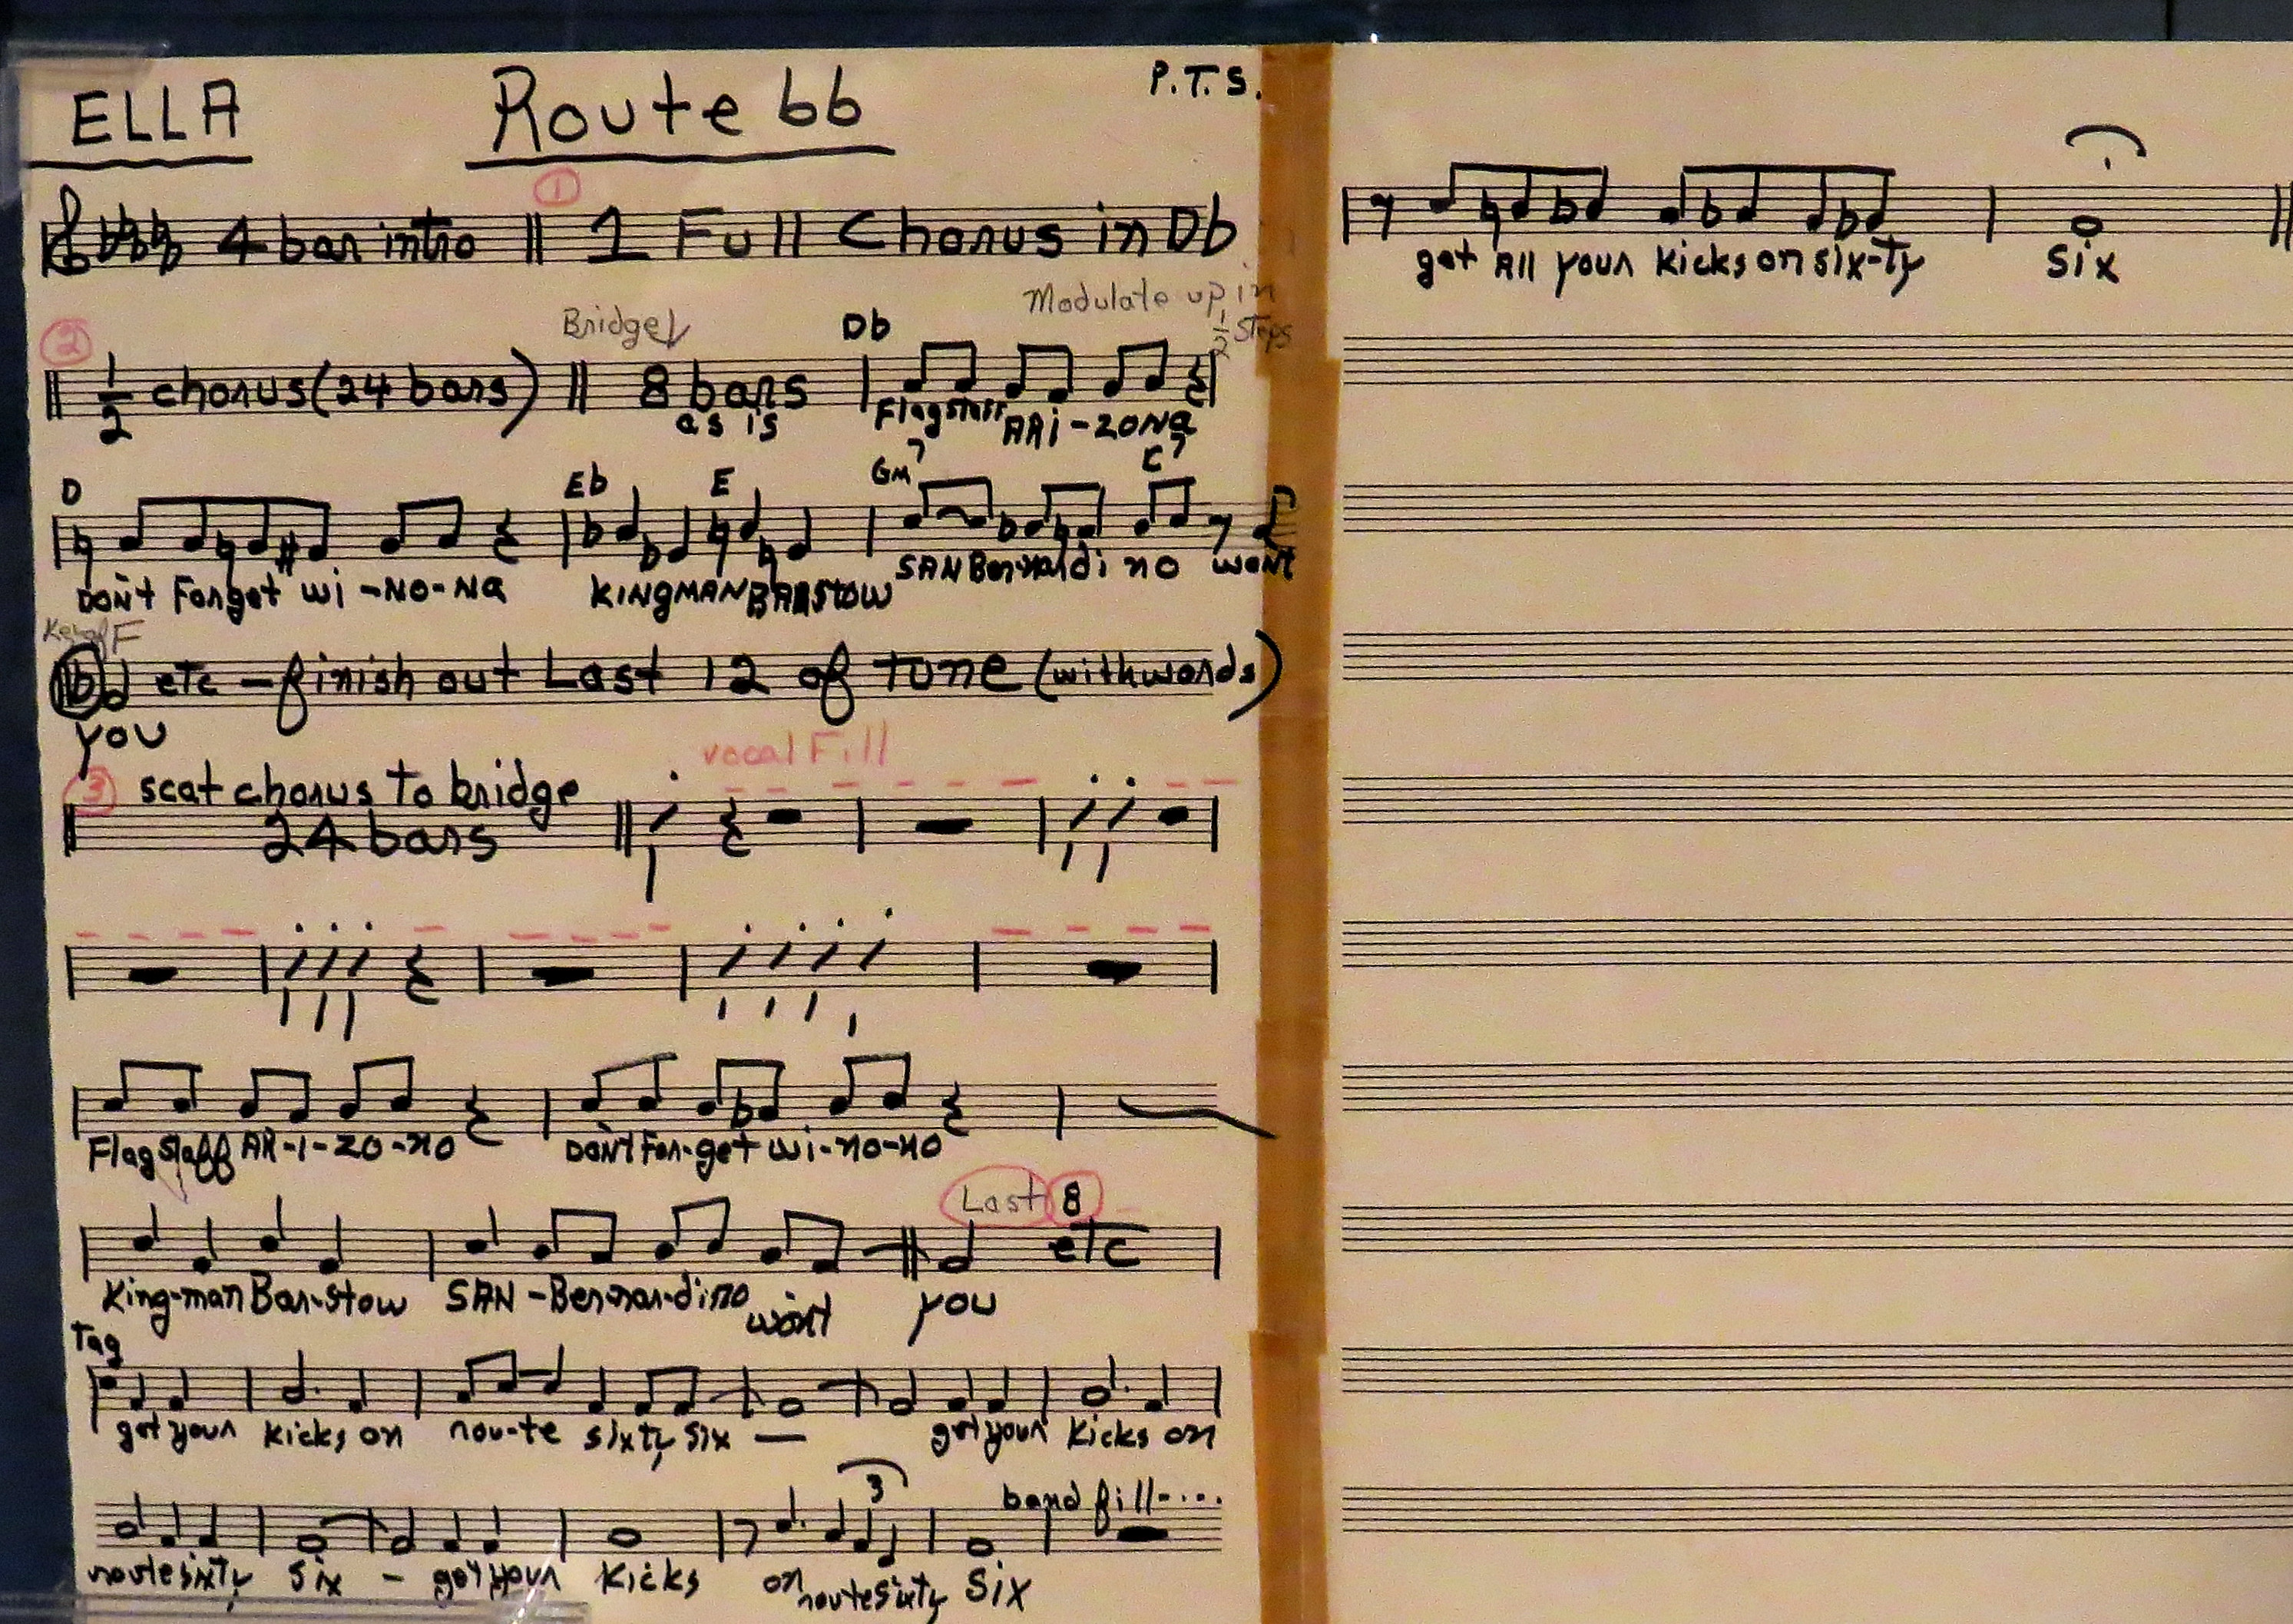 ELLA Route 66 P.T.S.
①
4 bar intro 1 Full Chorus in Db
Bridge Db Modulate up in 1/2 steps
② 1/2 chorus (24 bars) 8 bars
as is Flagstaff ARi-zona
D Eb E Gm7 C7
Don't Forget wi-No-Na KINgMAN BARSTOW SAN Bernardi no wont
Key of F
etc - finish out Last 12 of Tune (with words)
you
vocal Fill
③ scat chorus to bridge
24 bars
Flagstaff AR-I-ZO-NO Don't For-get wi-no-no
Last 8
etc
King-man Bar-stow SAN-Ber-nar-dino wont you
Tag
get your kicks on rou-te sixty six — get your kicks on
3 band fill-...
route sixty six - get your kicks on route sixty six
get All your kicks on six-ty six